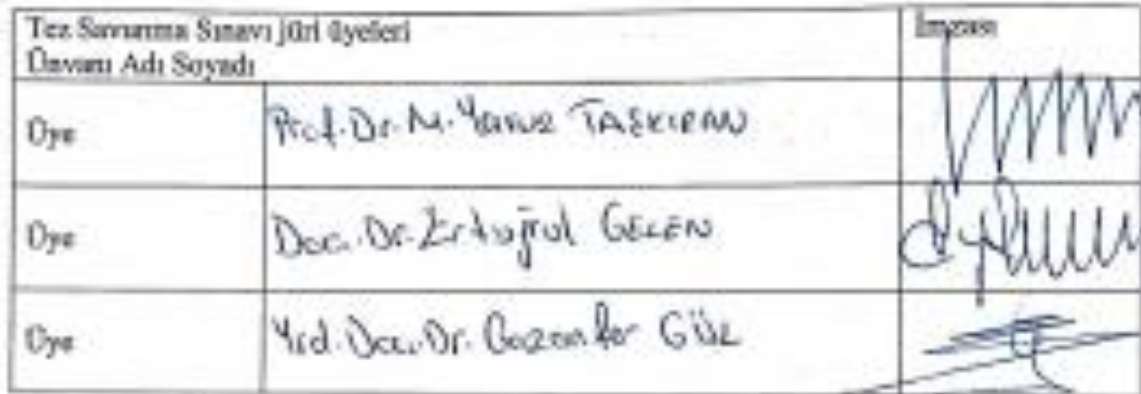 Tez Savunma Sınavı jüri üyeleri
Ünvanı Adı Soyadı
İmzası
Üye Prof. Dr. M. Yavuz TAŞKIRAN
Üye Doc. Dr. Ertuğrul GELEN
Üye Yrd. Doc. Dr. Gazanfer GÜL